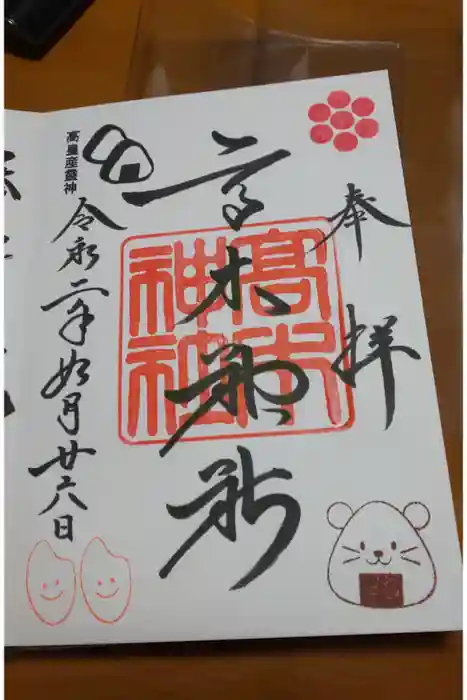 奉拝
高木神社
高木神社
高皇産霊神
令和二年如月廿六日